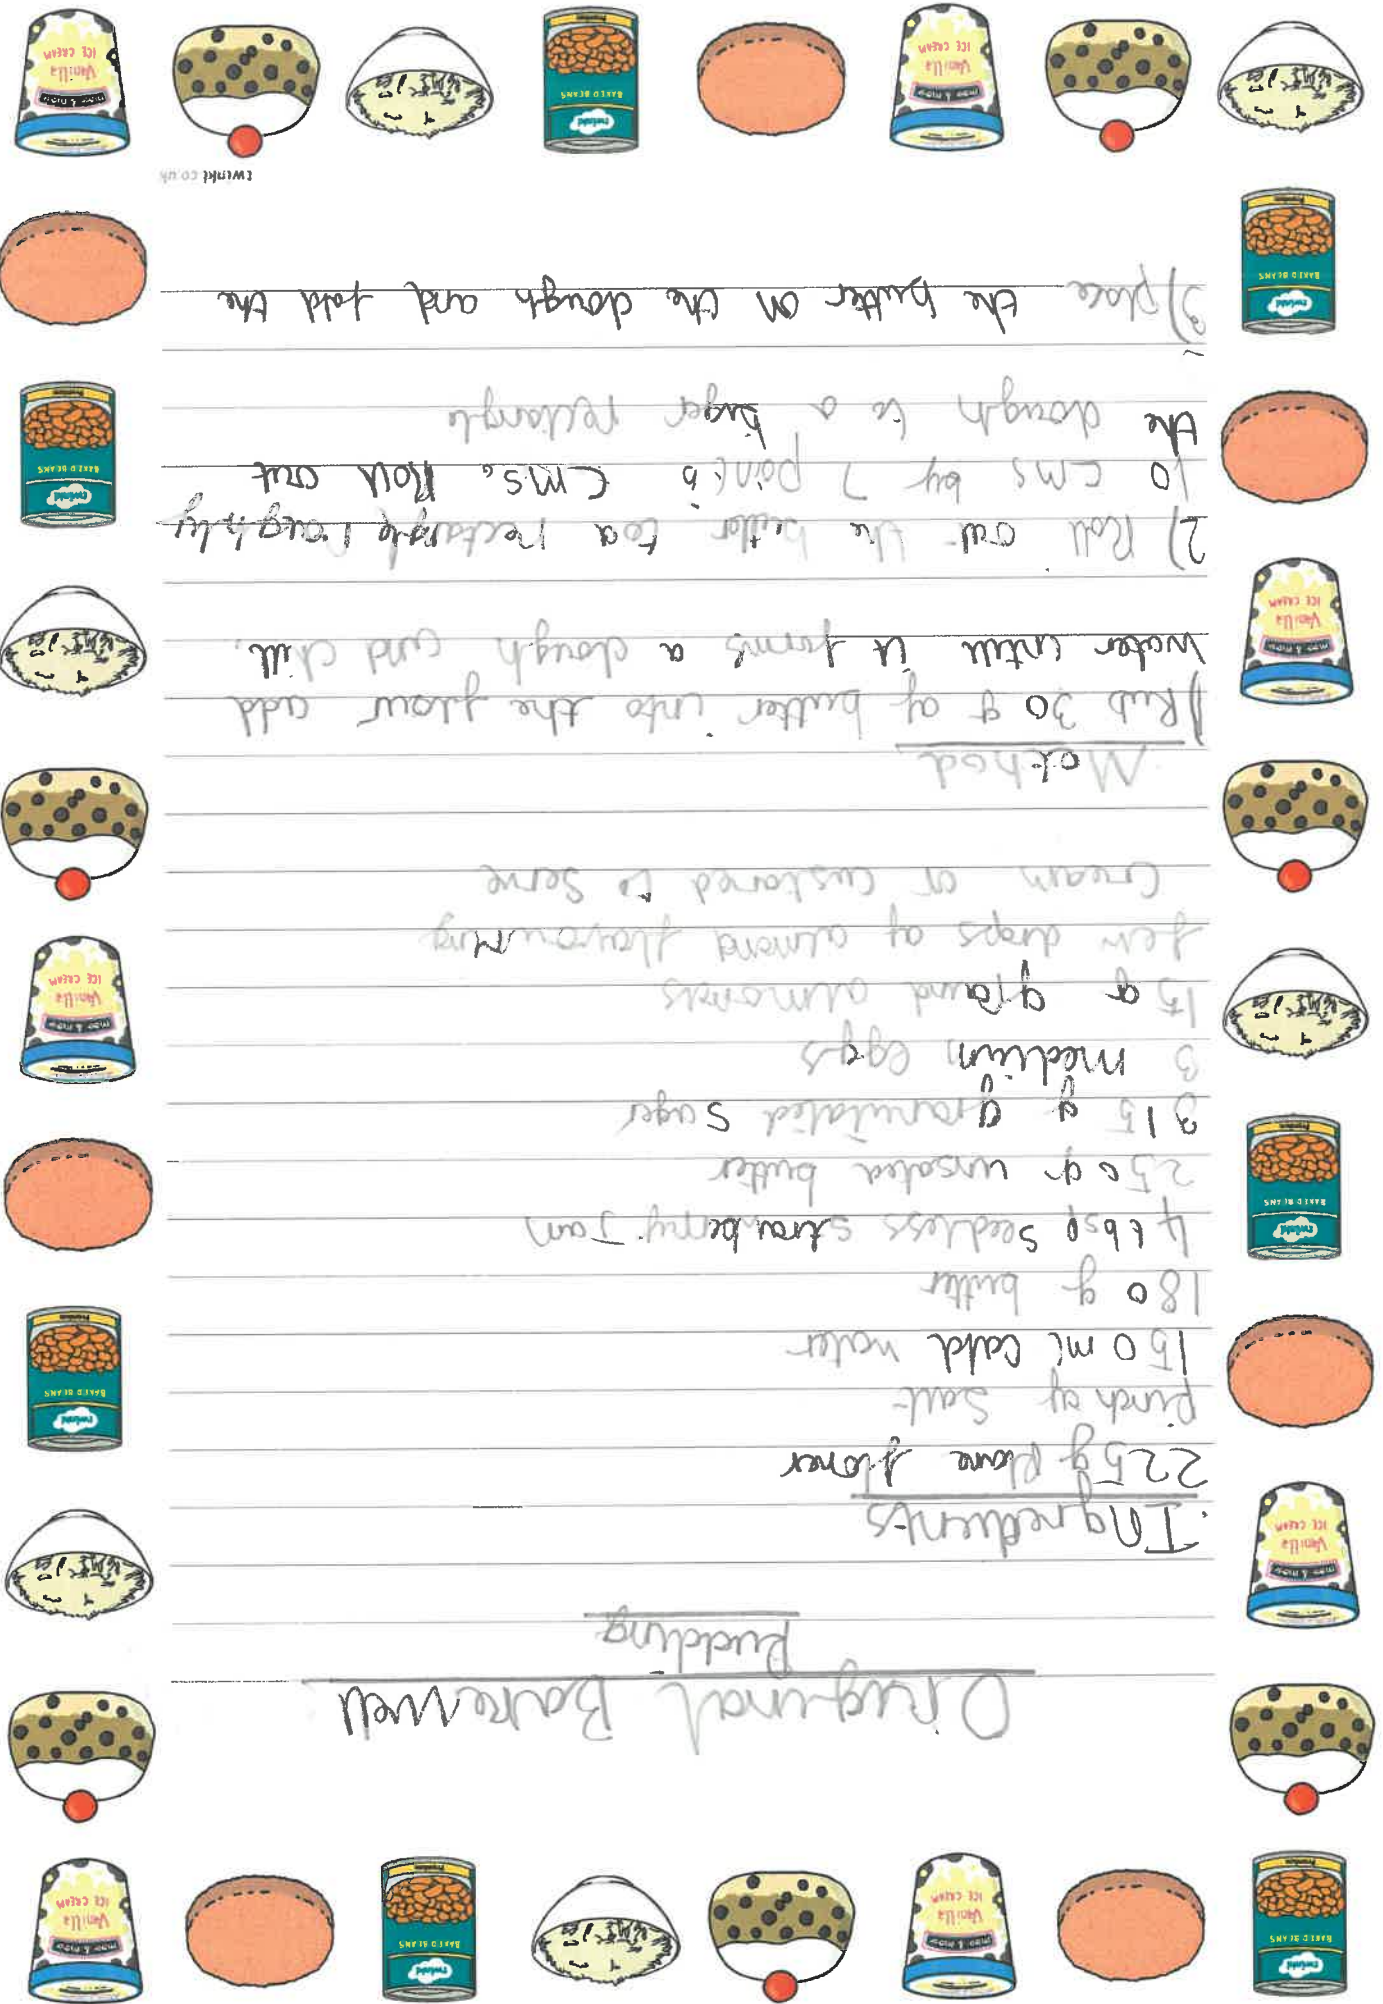 Original Bakewell
Pudding
Ingredients
225g plane flower
Pinch of salt
150 ml cold water
180 g butter
4 tbsp seedless strawberry Jam
250 g unsalted butter
315 g granulated suger
3 medium eggs
15 g ground almonds
few drops of almond flavouring
Cream or custared to serve
Method
1) Rub 30 g of butter into the flour add
water intill it forms a dough and chill.
2) Roll out the butter to a rectangle roughly
10 cms by 7 point 5 cms. Roll out
the dough to a biger rectangle
3) place the butter on the dough and fold the
twinkl.co.uk